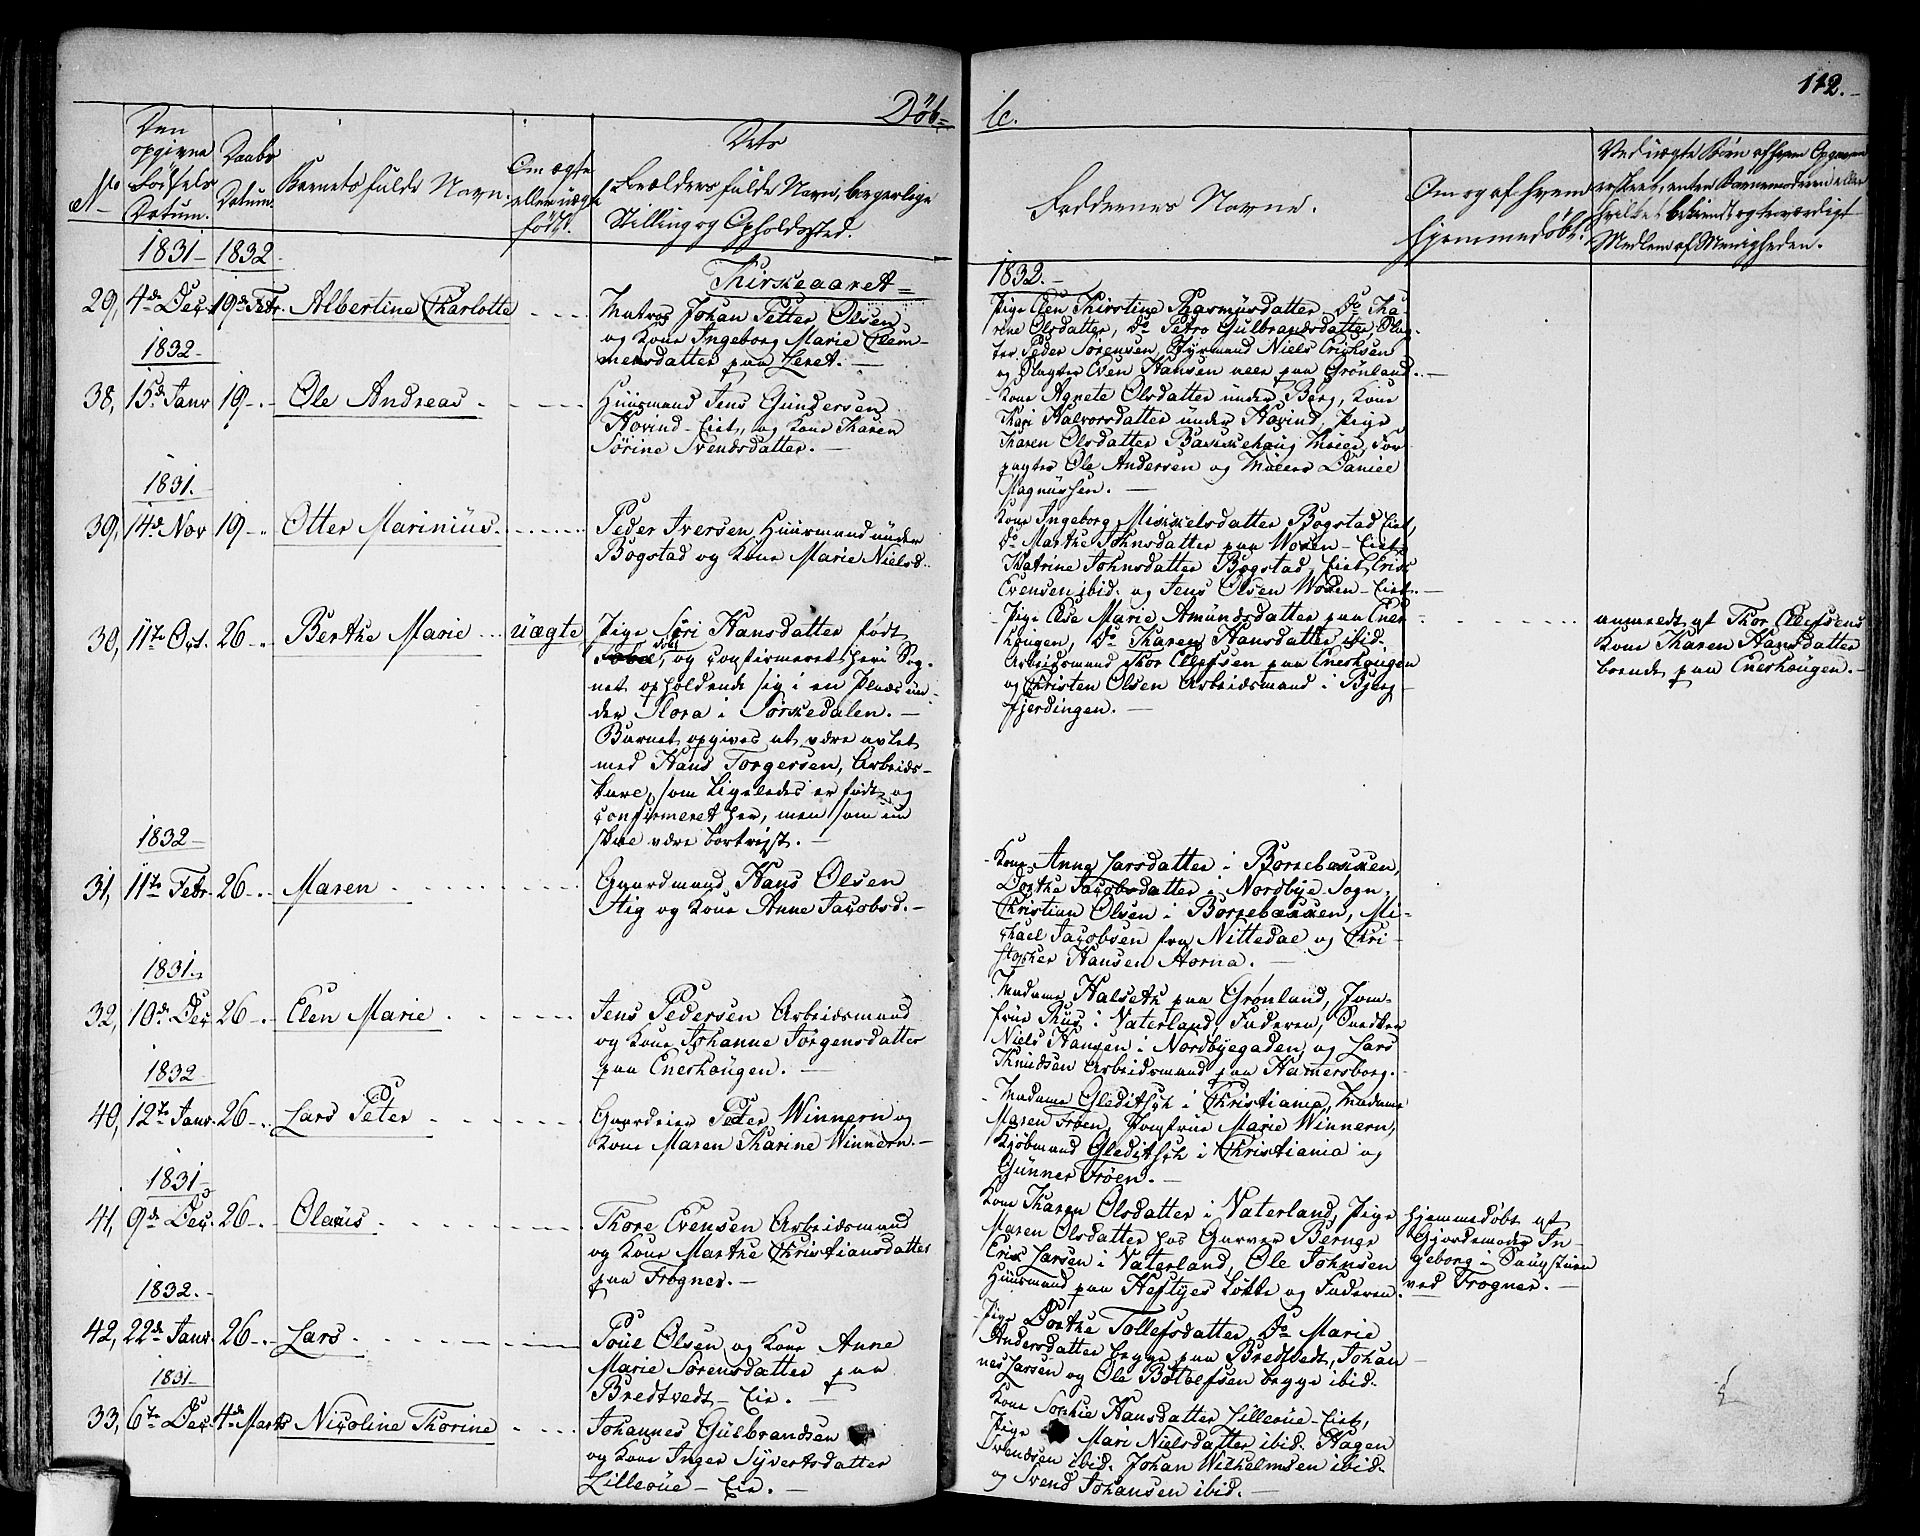 112.
Døb-
te.
No
Den
opgivne
Fødsels
Datum.
Daabs
Datum.
Barnets fulde Navn.
Om ægte
eller uægte
født.
Dets
Forældres fulde Navn, borgerlige
Stilling og Opholdssted.
Faddernes Navne.
Om og af hvem
hjemmedøbt.
Ved uægte Børn af hvem Opgaven
er skeet, enten Barnemoderen eller
hvilket bekiendt og troværdigt
Medlem af Menigheden.
1831 1832
29, 4de Dec. 19de Febr. Albertine Charlotte
Matros Johan Petter Olsen
og Kone Ingeborg Marie Clem-
mensdatter paa Leret.
1832.
Pige Elen Thirstine Rasmusdatter, Do Tha-
rine Olsdatter, Do Petro Gulbrandsdatter, Slag-
ter Peder Sørensen, Styrmand Niels Erichsen
og Slagter Even Hansen alle paa Grønland.
1832
38, 15de Janr 19 Ole Andreas
Huusmand Jens Gundersen
Hovind-Eiet, og Kone Karen
Sørine Svendsdatter.
Kone Agnete Olsdatter under Berg, Kone
Kari Halvorsdatter under Hovind, Pige
Karen Olsdatter Bakkehaug, For-
pagter Ole Andersen og Daniel
Magnussen.
1831.
39, 14de Nov 19 Otter Marinius
Peder Iversen Huusmand under
Bogstad og Kone Marie Nielsd.
Kone Ingeborg Mikkelsdatter Bogstad Eiet,
Do Marthe Johnsdatter paa Voxen-Eiet,
Katrine Johnsdatter Bogstad, Eiet, Eric
Evensen ibid. og Jens Olsen Voxen-Eiet.
30, 11te Oct. 26 Berthe Marie uægte
Pige Siri Hansdatter født
døbt, og confirmeret her i Sog-
net opholdende sig i en Plads un-
der Flora i Sørkedalen.
Barnet opgives at være avlet
med Hans Torgersen, Arbeids-
karl, som ligeledes er født og
confirmeret her, men som nu
skal være bortrejst.
Pige Else Marie Amundsdatter paa Ener-
hougen, Do Karen Hansdatter ibid.
Arbeidsmand Thor Ellefsen paa Enerhougen
og Christen Olsen Arbeidsmand i Bjerg-
fjerdingen.
anmeldt af Thor Ellefsens
Kone Karen Hansdatter
boende paa Enerhougen.
1832
31, 11te Febr. 26 Maren
Gaardmand Hans Olsen
Stig og Kone Anne Jacobsd.
Kone Anne Larsdatter i Borrebækken,
Dorthe Jacobsdatter i Nordbye Sogn,
Christian Olsen i Borrebækken, Mi-
chael Jacobsen fra Nittedal og Chri-
stopher Hansen
1831.
32, 10de Dec 26 Elen Marie
Jens Pedersen Arbeidsmand
og Kone Johanne Jørgensdatter
paa Enerhougen.
Madame Halseth paa Grønland, Jom-
frue i Vaterland, Faderen, Snedker
Niels Hansen i Nordbyegaden og Lars
Knudsen Arbeidsmand paa Hamersborg.
1832
40, 12te Janr. 26 Lars Peter
Gaardeier Peter Winnern og
Kone Maren Karine Winnern.
Madame Gleditsch i Christiania, Madame
Maren Frøen, Jomfrue Marie Winnern,
Kjøbmand Gleditsch i Christiania og
Gunner Frøen.
1831
41, 9de Dec. 26 Olaus
Thore Evensen Arbeidsmand
og Kone Marthe Christiansdatter
paa Frogner.
Kone Karen Olsdatter i Vaterland, Pige
Maren Olsdatter hos Garver Berntz
Eric Larsen i Vaterland, Ole Johnsen
Huusmand paa Heftyes Løkke og Faderen.
hjemmedøbt af
Gjordemoder In-
geborg i Saugstuen
ved Frogner.
1832.
42, 22de Janr. 26 Lars
Poul Olsen og Kone Anne
Marie Sørensdatter paa
Bredtvedt-Eie.
Pige Dorthe Tollefsdatter, Do Marie
Andersdatter begge paa Bredtvedt, Johan-
nes Larsen og Ole Botolfsen begge ibid.
1831
33, 6te Dec. 4de Marts Nicoline Thorine
Johannes Gulbrandsen
og Kone Inger Syvertsdatter
Lilleøue-Eie.
Kone Sophie Hansdatter Lilleøue-Eiet,
Pige Mari Nielsdatter ibid. Hagen
Svendsen ibid. Johan Wilhelmsen ibid.
og Svend Johansen ibid.